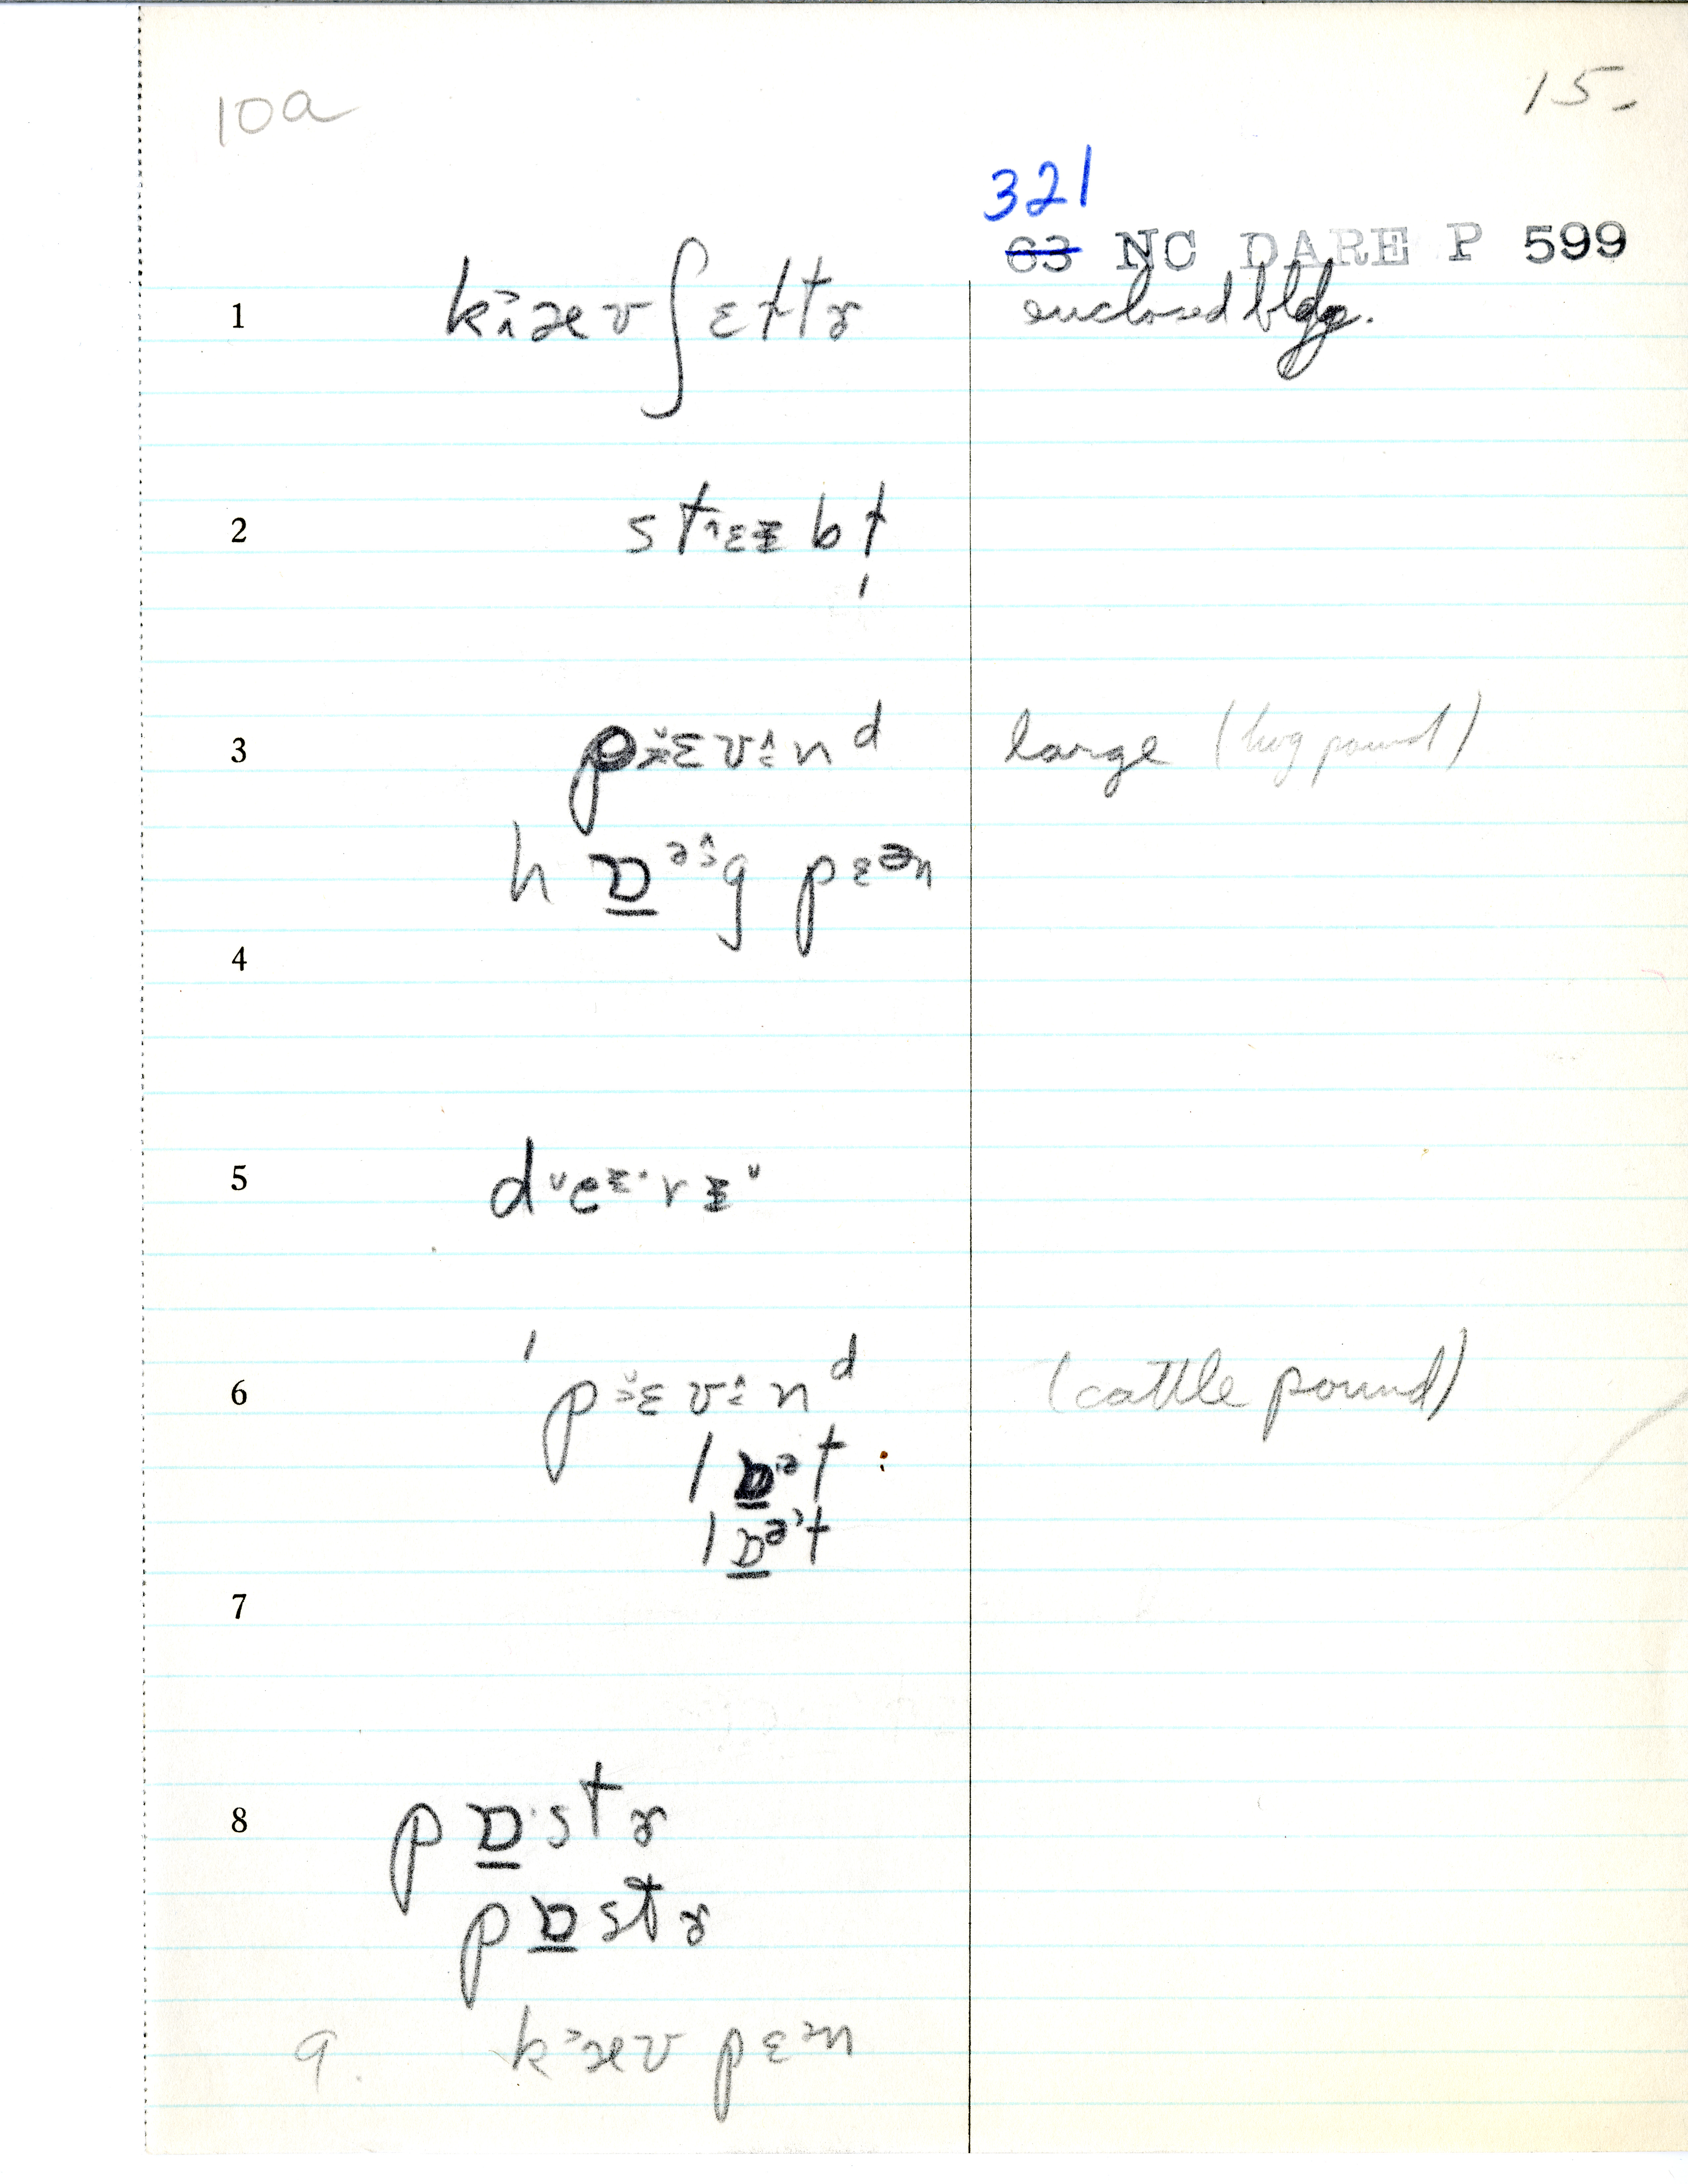 10a 15.
321
63 NC DARE P 599
1 k æʊʃɛltɚ enclosed bldg.
2 st ɛɪbl̩
3 pɛʊnᵈ large (hog pound)
hɒ̱ᵊg pɛᵊn
4
5 deᶤrɨ
6 ˈpɛʊnᵈ (cattle pound)
lɒ̱ᵊt :
lɒ̱ᵊt
7
8 pɒ̱stɚ
pɒ̱stɚ
9. k˃æʊ pɛᵊn